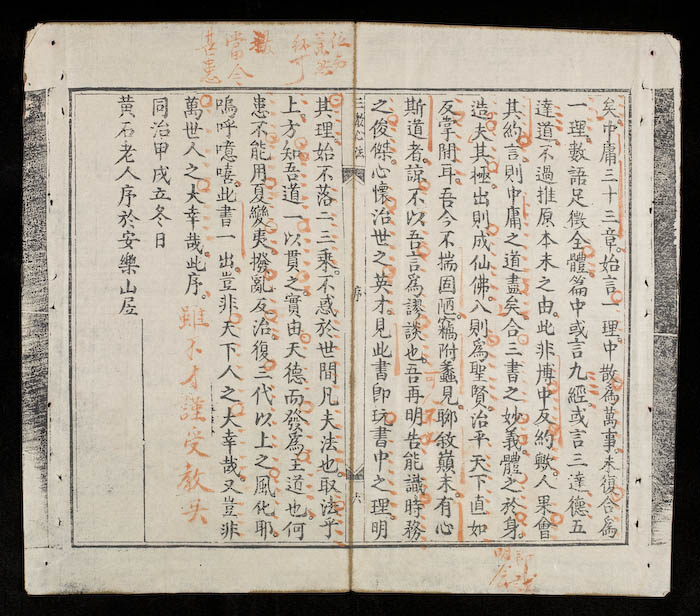 矣。中庸三十三章。始言一理。中散爲萬事。末復合爲
一理。數語足徵全體。篇中或言九經。或言三達德五
達道。不過推原本末之由。此非博中反約歟。人果會
其約言。則中庸之道盡矣。合三書之妙義。體之於身。
造夫其極。出則成仙佛。入則爲聖賢。治平天下直如
反掌間耳。吾今不揣固陋。竊附蠡見。聊敘巔末。有心
斯道者。諒不以吾言爲謬談也。吾再明告能識時務
之俊傑。心懷治世之英才。見此書卽玩書中之理。明
三教心法 序 六
其理。始不落二三乘。不惑於世間凡夫法也。取法乎
上。方知吾道一以貫之。實由天德而發爲王道也。何
患不能用夏變夷。撥亂反治。復三代以上之風化耶。
嗚呼噫嘻。此書一出。豈非天下人之大幸哉。又豈非
萬世人之大幸哉。此序。
雖不才謹受教矣
同治甲戌立冬日
黃石老人序於安樂山居
當令